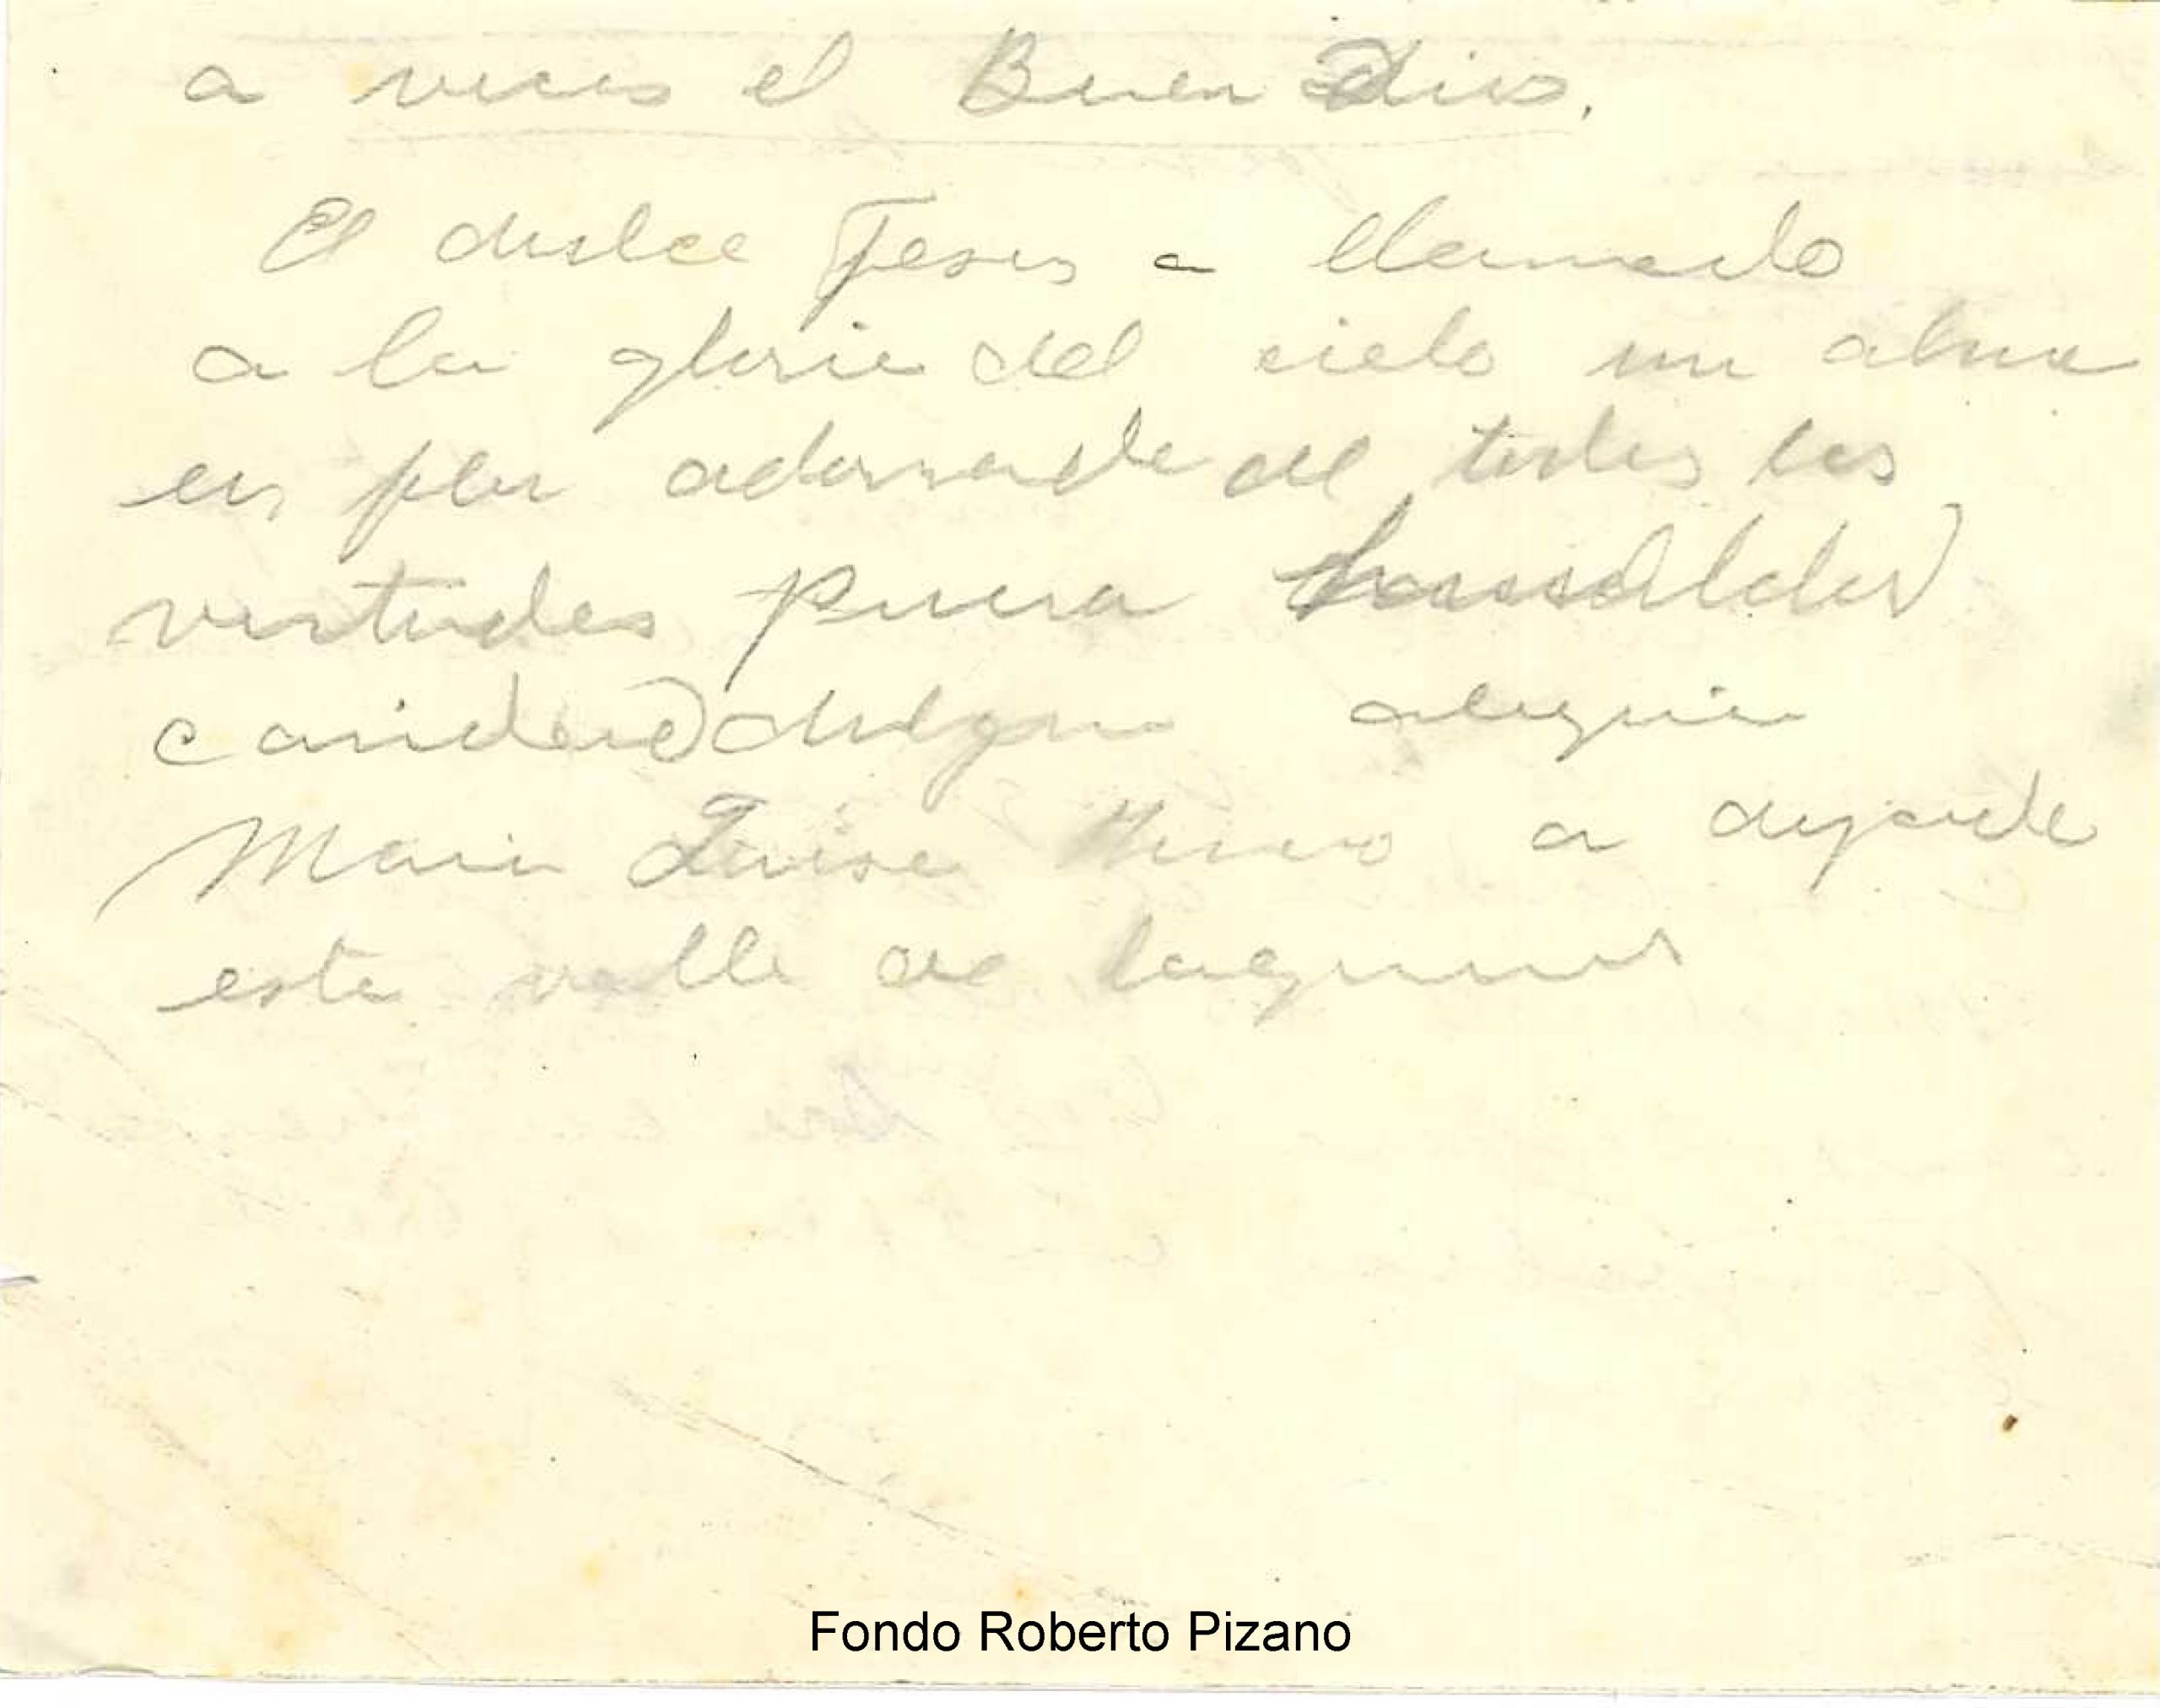 a veces el Buen Dios.
El dulce Jesus a llamado
a la gloria del cielo un alma
adornada de todas las
virtudes pureza humildad
caridad alegria
Maria Luisa a dejado
este valle de lagrimas
Fondo Roberto Pizano